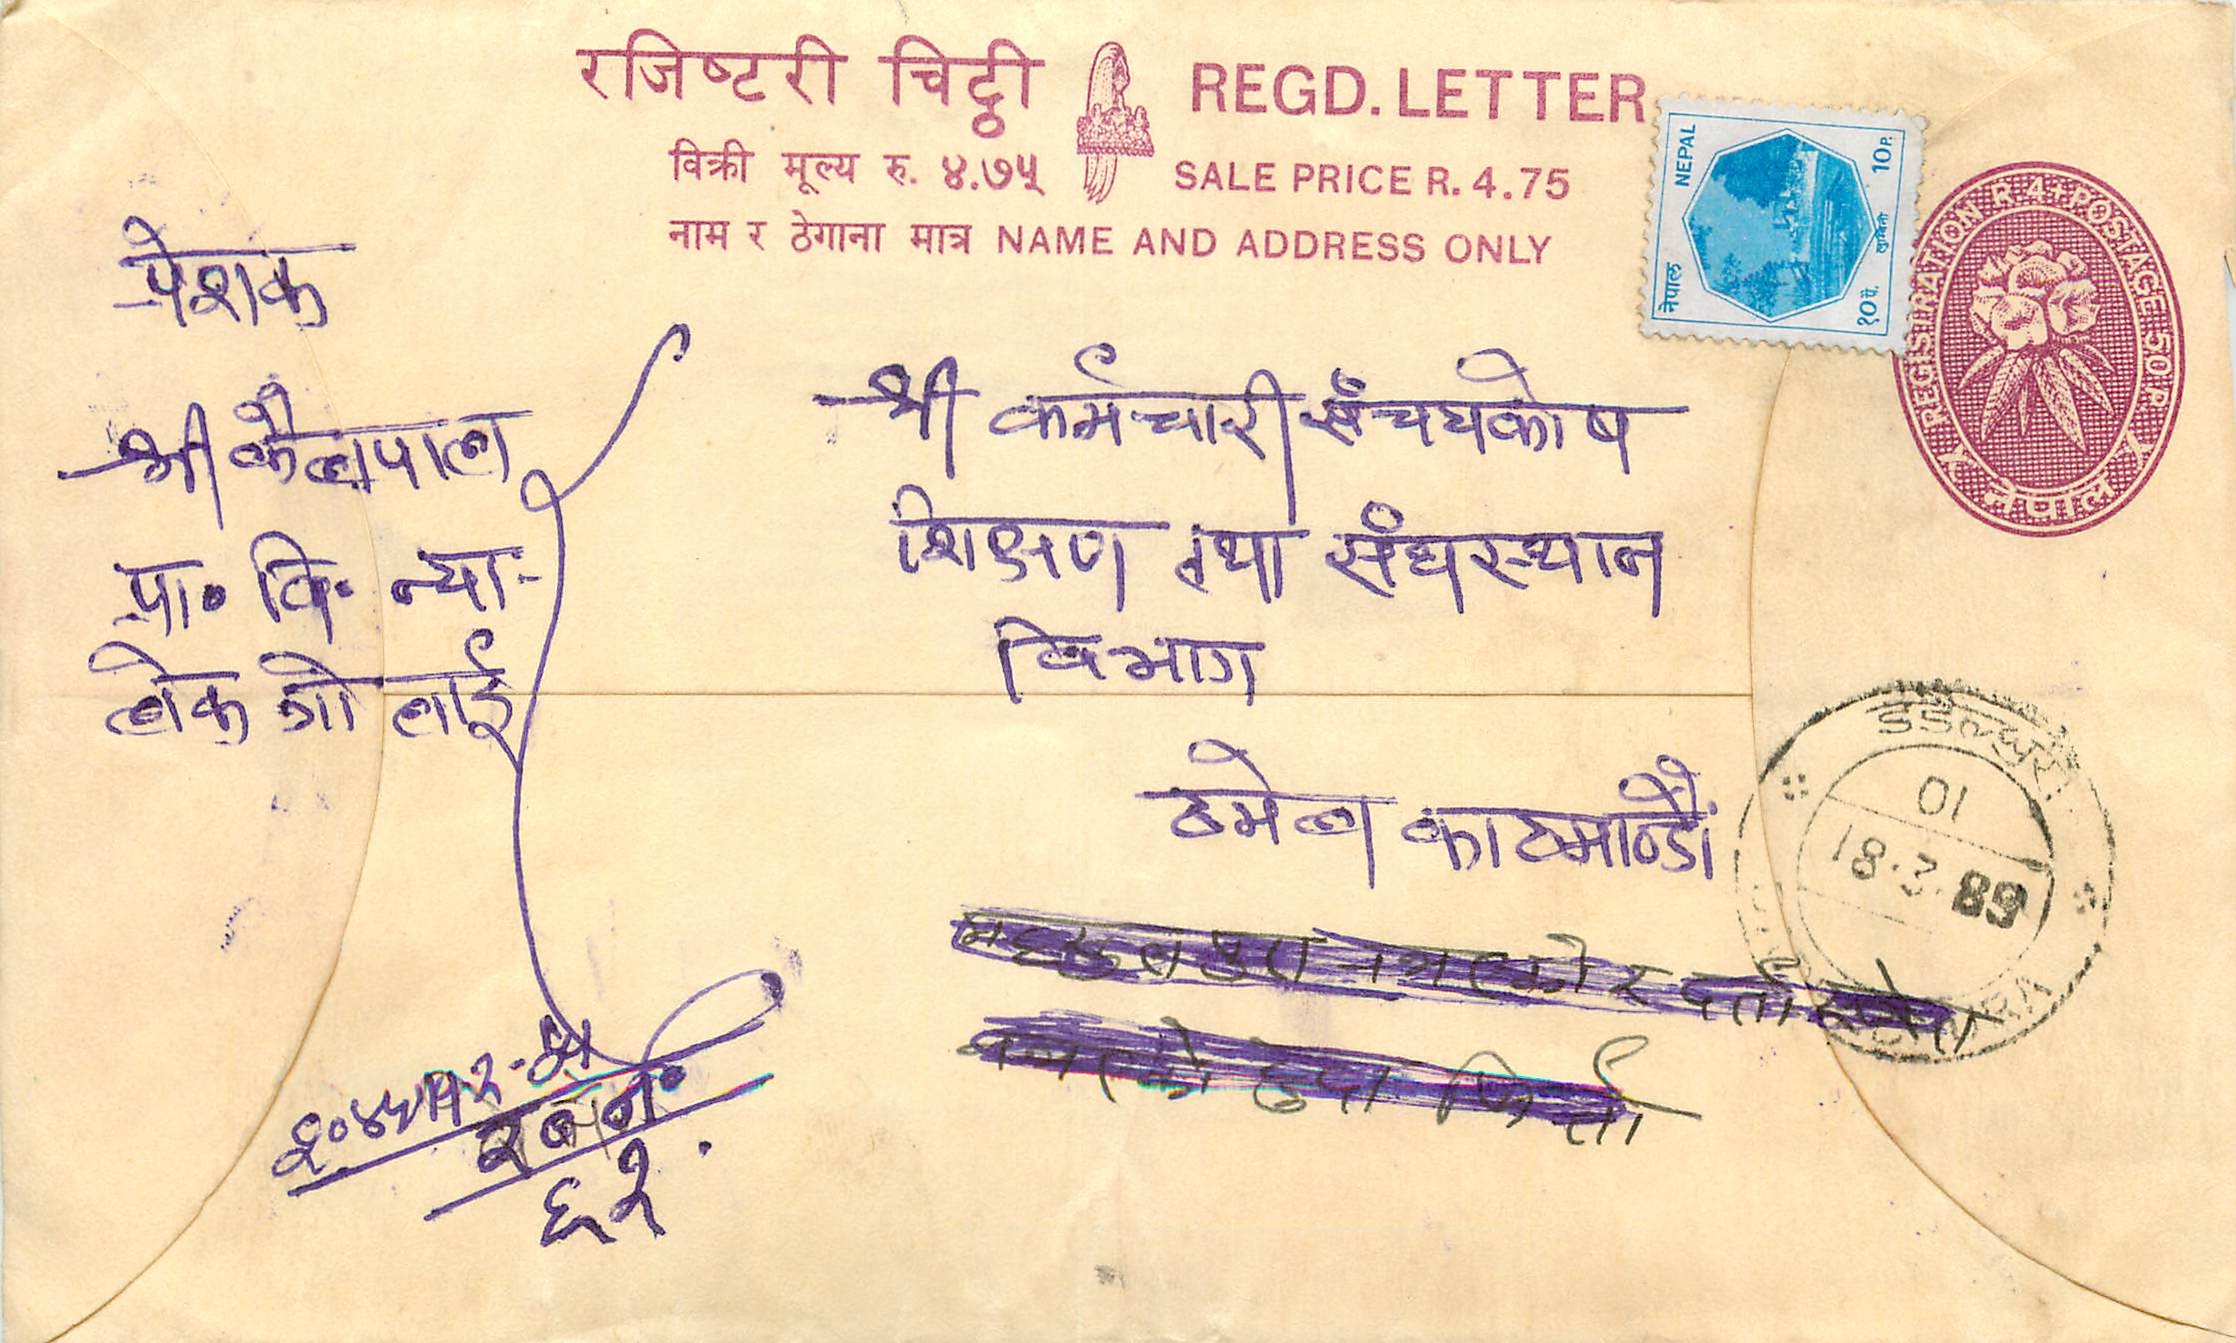 रजिष्टरी चिट्ठी REGD. LETTER
विक्री मूल्य रु. ४.७५ SALE PRICE R. 4.75
नाम र ठेगाना मात्र NAME AND ADDRESS ONLY
NEPAL 10P.
नेपाल १०पै.
REGISTRATION R 4 + POSTAGE 50P.
नेपाल
प्रेशक
श्री कैलपाल
प्रा॰ वि॰ न्या-
लेक जोलाई
श्री कर्मचारी संचयकोष
शिक्षण तथा संघस्थान
विभाग
ठमेल काठमाण्डौं
डडेल्धुरा
01
18.3.89
६१